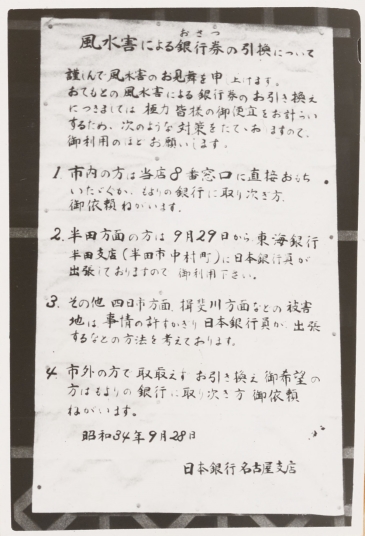 おさつ
風水害による銀行券の引換について
謹しんで風水害のお見舞を申上げます。
おてもとの風水害による銀行券のお引き換え
につきましては極力皆様の御便宜をお計らい
するため、次のような対策をたておますので、
御利用のほどお願いします。
1. 市内の方は当店8番窓口に直接おもち
いたゞくか、もよりの銀行に取り次ぎ方
御依頼ねがいます。
2. 半田方面の方は9月29日から東海銀行
半田支店(半田市中村町)に日本銀行員が
出張しておりますので御利用下さい。
3. その他四日市方面、揖斐川方面などの被害
地は、事情の許すかぎり日本銀行員が出張
するなどの方法を考えております。
4. 市外の方で取敢えずお引き換え御希望の
方はもよりの銀行に取り次ぎ方御依頼
ねがいます。
昭和34年9月28日
日本銀行名古屋支店